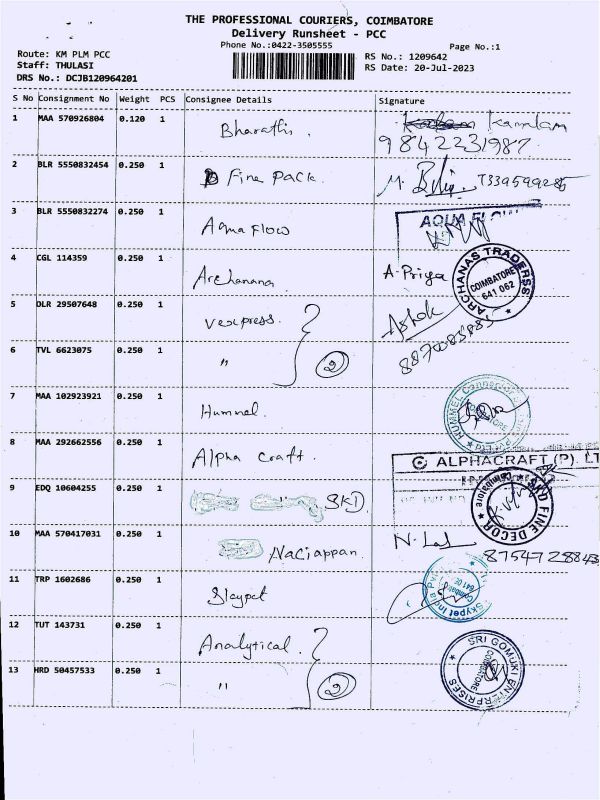 THE PROFESSIONAL COURIERS, COIMBATORE
Delivery Runsheet - PCC
Phone No.:0422-3505555
Page No.:1
Route: KM PLM PCC
Staff: THULASI
DRS No.: DCJB120964201
RS No.: 1209642
RS Date: 20-Jul-2023
S No Consignment No Weight PCS Consignee Details Signature
1 MAA 570926804 0.120 1 Bharathi. Kamalam
9842231987
2 BLR 5550832454 0.250 1 Fine Pack. M.
3 BLR 5550832274 0.250 1 Aqua Flow AQUA FLOW
4 CGL 114359 0.250 1 Archanana. A. Priya
ARCHANAS TRADERSS COIMBATORE 641 062
5 DLR 29507648 0.250 1 Vexpress. Ashok
6 TVL 6623075 0.250 1 " 2
7 MAA 102923921 0.250 1 Hummel. HUMMEL
8 MAA 292662556 0.250 1 Alpha Craft. ALPHACRAFT (P). LT
9 EDQ 10604255 0.250 1 SKD. SKD FINE DECOR Coimbatore
10 MAA 570417031 0.250 1 Naciappan. N. Lal
11 TRP 1602686 0.250 1 Skypet Skypet India
12 TUT 143731 0.250 1 Analytical.
13 HRD 50457533 0.250 1 " 2 SRI GOMUKI ENTERPRISES COIMBATORE